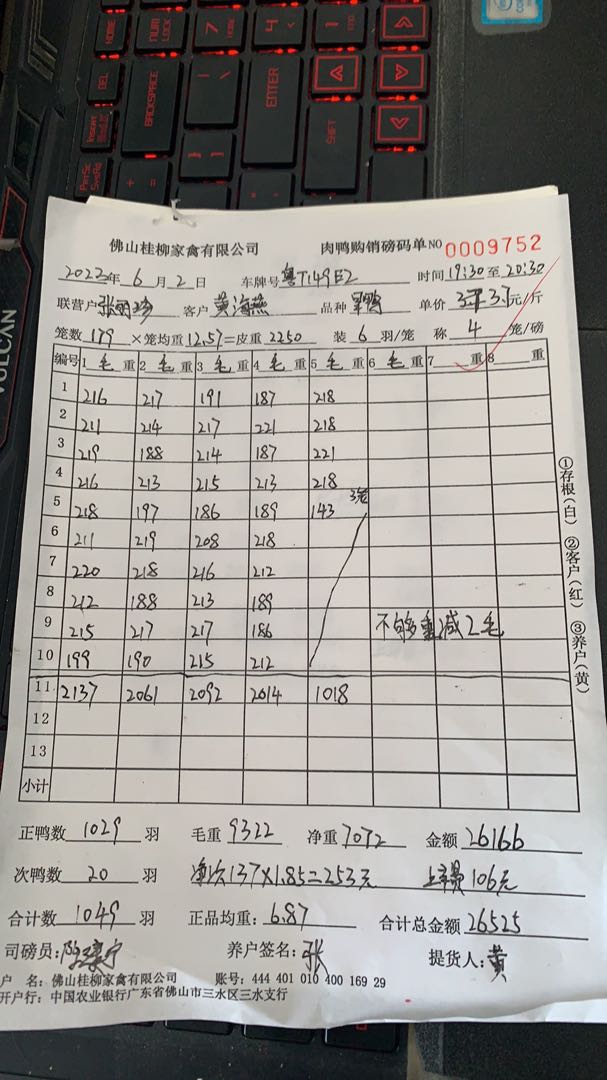 HOME
NUM LOCK
7
4
1
DEL
BACKSPACE
ENTER
SHIFT
INSERT
PrtSc SysRq
VULCAN
佛山桂柳家禽有限公司 肉鸭购销磅码单NO 0009752
2022年 6 月 2 日 车牌号 粤T149E2 时间 19:30 至 20:30
联营户 客户 黄海燕 品种 单价 元/斤
笼数 179 ×笼均重 12.57 =皮重 2250 装 6 羽/笼 称 4 笼/磅
编号 1 毛 重 2 毛 重 3 毛 重 4 毛 重 5 毛 重 6 毛 重 7 重 8 重
1 216 217 191 187 218
2 211 214 217 221 218
3 219 188 214 187 221
4 216 213 215 213 218
5 218 197 186 189 143 3笼
6 211 219 208 218
7 220 218 216 212
8 212 188 213 189
9 215 217 217 186 不够重减2毛
10 199 190 215 212
11 2137 2061 2092 2014 1018
12
13
小计
①存根(白) ②客户(红) ③养户(黄)
正鸭数 1029 羽 毛重 9322 净重 7072 金额 26166
次鸭数 20 羽 净次137×1.85=253元 106元
合计数 1049 羽 正品均重: 6.87 合计总金额 26525
司磅员: 养户签名: 张 提货人: 黄
户 名: 佛山桂柳家禽有限公司 账号: 444 401 010 400 169 29
开户行: 中国农业银行广东省佛山市三水区三水支行